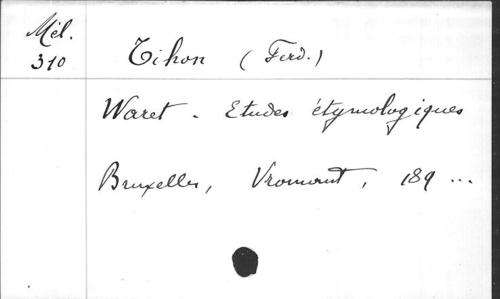 Mél.
310
Tihon (Ferd.)
Waret - Etudes étymologiques
Bruxelles, Vromant, 189 ...